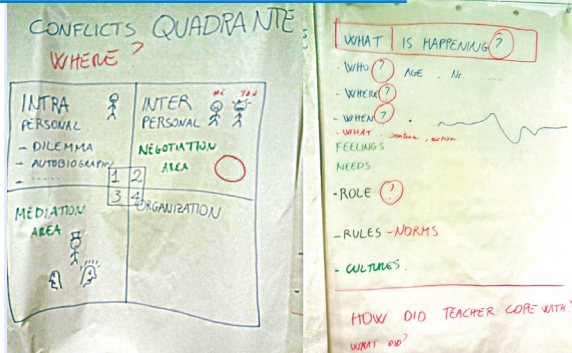 CONFLICTS QUADRANTE
WHERE?
INTRA
PERSONAL
- DILEMMA
- AUTOBIOGRAPHY
- ......
INTER
PERSONAL
ME YOU
NEGOTIATION
AREA
1 2
3 4
MEDIATION
AREA
ORGANIZATION
WHAT IS HAPPENING?
- WHO? AGE . Nr .....
- WHERE?
- WHEN?
- WHAT action
FEELINGS
NEEDS
- ROLE ?
- RULES - NORMS
- CULTURES.
HOW DID TEACHER COPE WITH?
WHAT DID?